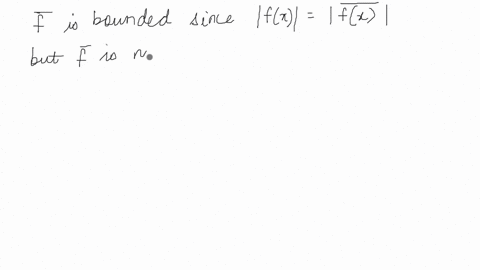 f̅ is bounded since |f(x)| = |\overline{f(x)}|
but f̅ is n